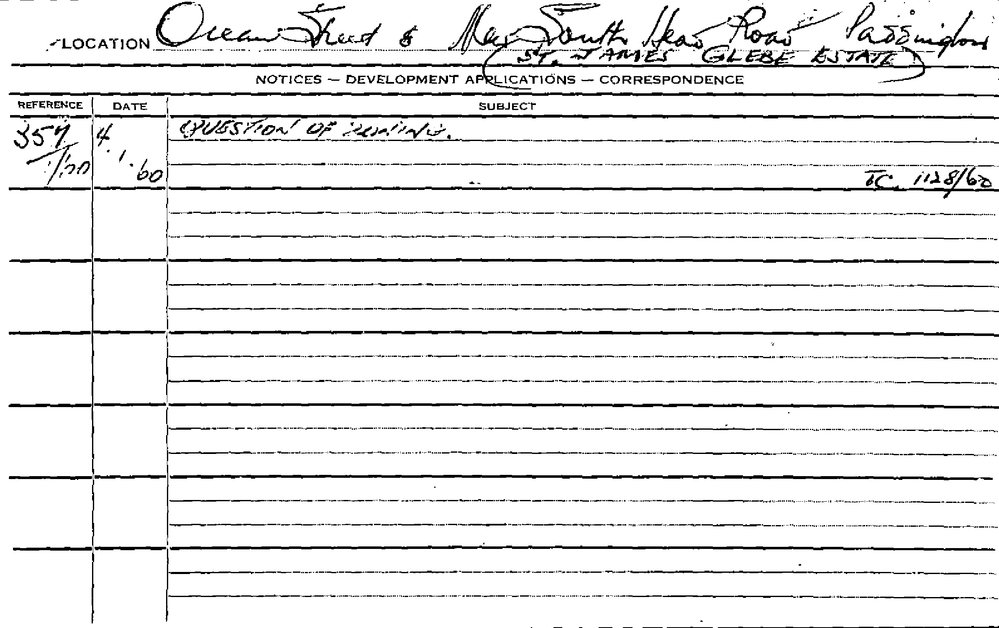 LOCATION Ocean Street & New South Head Road Paddington
(ST. JAMES GLEBE ESTATE)
NOTICES — DEVELOPMENT APPLICATIONS — CORRESPONDENCE
REFERENCE DATE SUBJECT
357 4 QUESTION OF ZONING.
.1.60
T.C. 1128/60